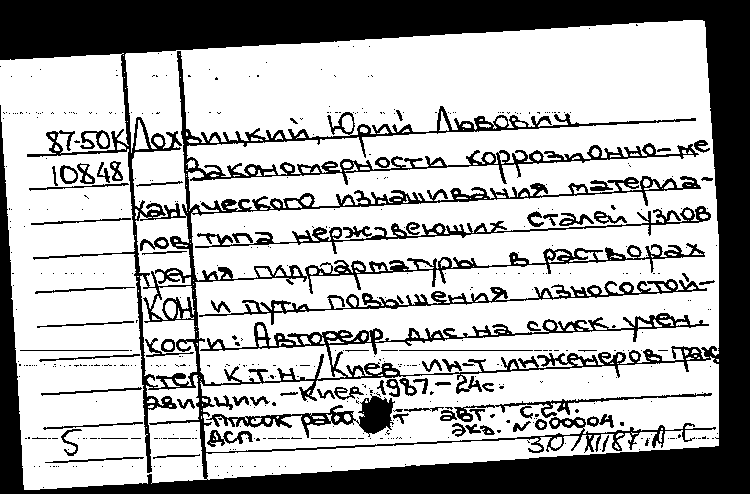 87-50К Лохвицкий, Юрий Львович.
10848 Закономерности коррозионно-ме
ханического изнашивания материа-
лов типа нержавеющих сталей узлов
трения гидроарматуры в растворах
КОН и пути повышения износостой-
кости: Автореф. дис. на соиск. учен.
степ. к.т.н. / Киев. ин-т инженеров граж
авиации. – Киев, 1987. – 24с.
Список работ авт.: с.24.
ДСП. Экз. № 000004.
S 30/XI187. А С